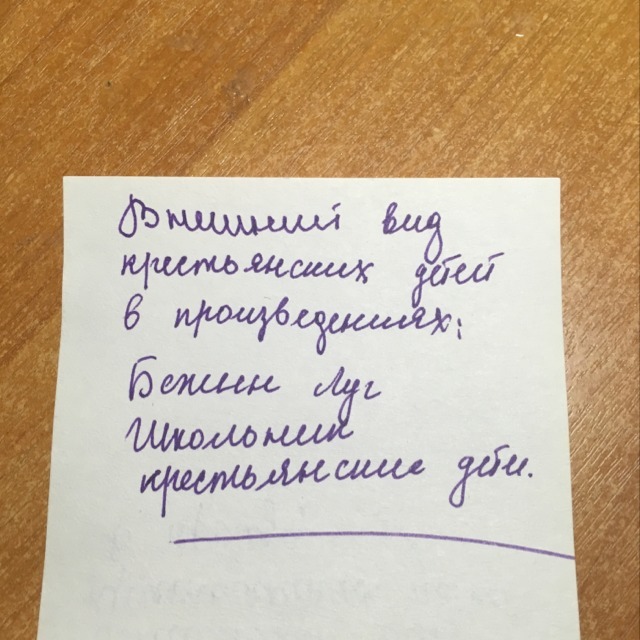 Внешний вид
крестьянских детей
в произведениях:
Бежин Луг
Школьник
крестьянские дети.